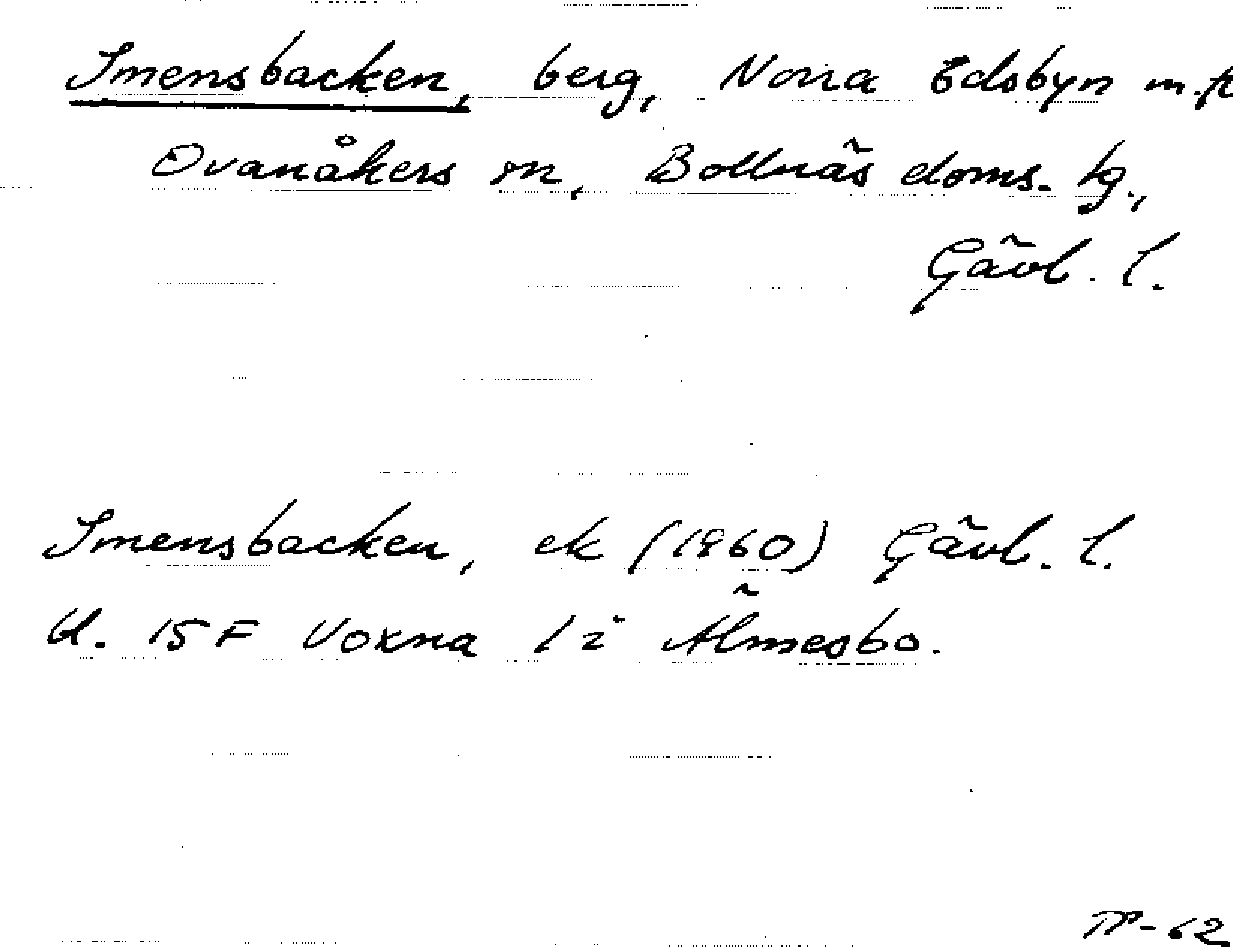 Imensbacken, berg, Norra Edsbyn m.fl
Ovanåkers sn, Bollnäs doms. tg.,
Gävl. l.
Imensbacken, ek (1960) Gävl. l.
bl. 15 F Voxna 1 i Älmesbo.
TP-62